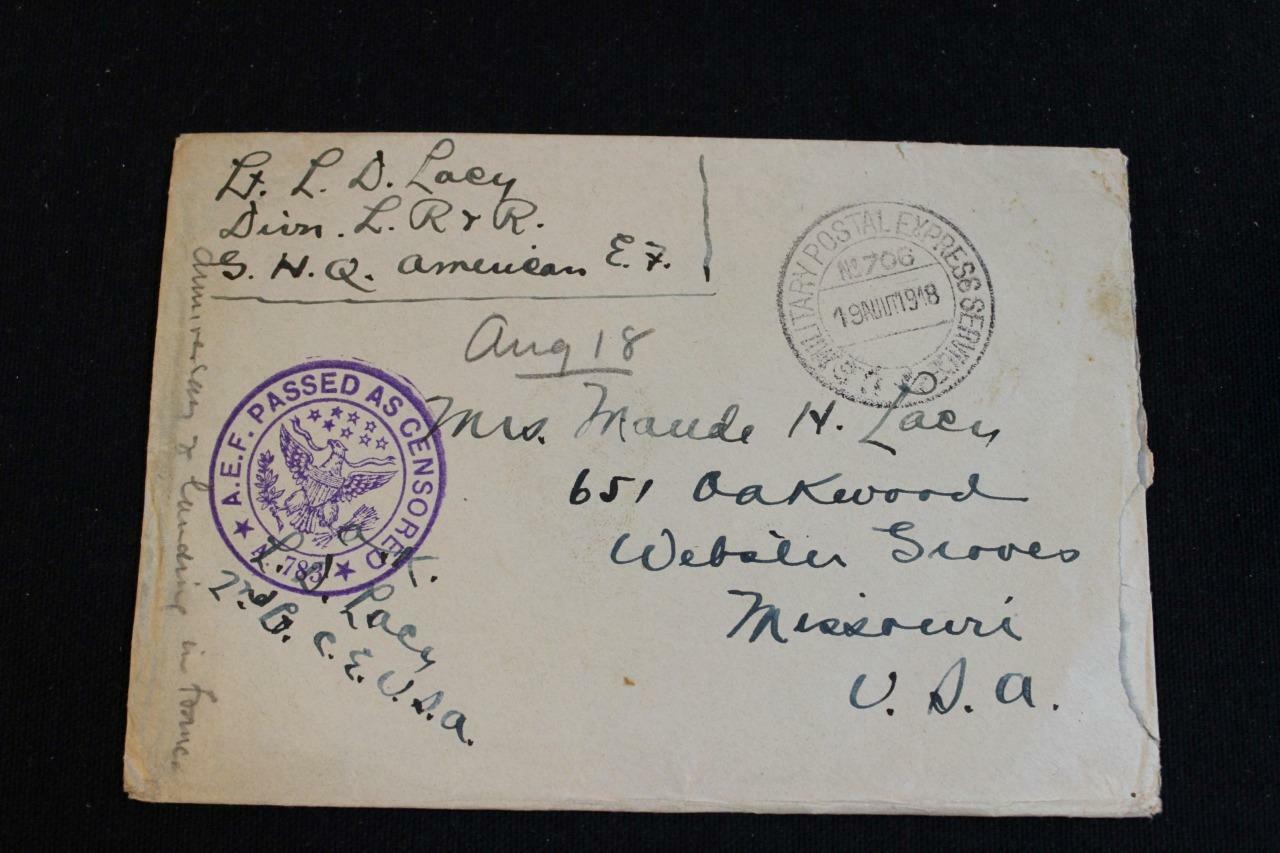 Lt. L. D. Lacy
Divn. L. R & R.
G. H. Q. American E. F.
MILITARY POSTAL EXPRESS SERVICE
No 706
19 1918
Aug 18
A.E.F. PASSED AS CENSORED
783
Mrs. Maude H. Lacy
651 Oakwood
Webster Groves
Missouri
U. S. A.
O.K.
L. D. Lacy
2nd Lt. C. E. U. S. A.
Anniversary & landing in France